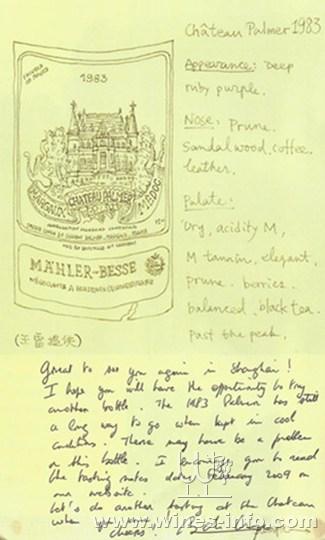 Château Palmer 1983
Appearance: Deep
ruby purple.
Nose: Prune.
Sandalwood. coffee.
leather.
Palate:
Dry, acidity M,
M tannin, elegant.
prune. berries.
balanced. black tea.
Past the peak.
1983
MARGAUX CHATEAU PALMER MEDOC
MÄHLER-BESSE
Great to see you again in Shanghai!
I hope you will have the opportunity to try
another bottle. The 1983 Palmer has still
a long way to go when kept in cool
conditions. There may have be a problem
on this bottle. I encourage you to read
the tasting notes dated February 2009 on
our website.
Let's do another tasting at the Chateau
when you
cheers!
www.wines-info.com